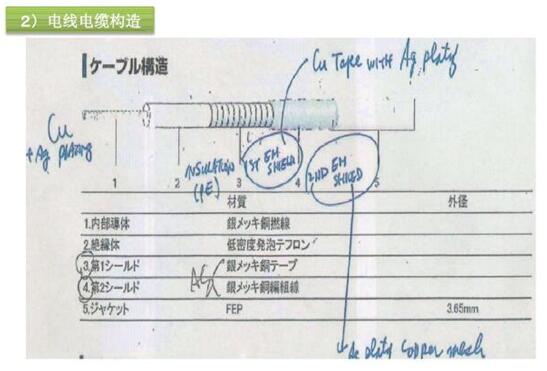 2）电线电缆构造
ケーブル構造
Cu Tape with Ag platg
Cu
+ Ag plating
INSULATION
(PE)
1ST EM
SHIELD
2ND EM
SHIELD
1 2 3 4 5
材質 外径
1.内部導体 銀メッキ銅撚線
2.絶縁体 低密度発泡テフロン
3.第1シールド 銀メッキ銅テープ
4.第2シールド 銀メッキ銅編組線
5.ジャケット FEP 3.65mm
Ag platg Copper mesh